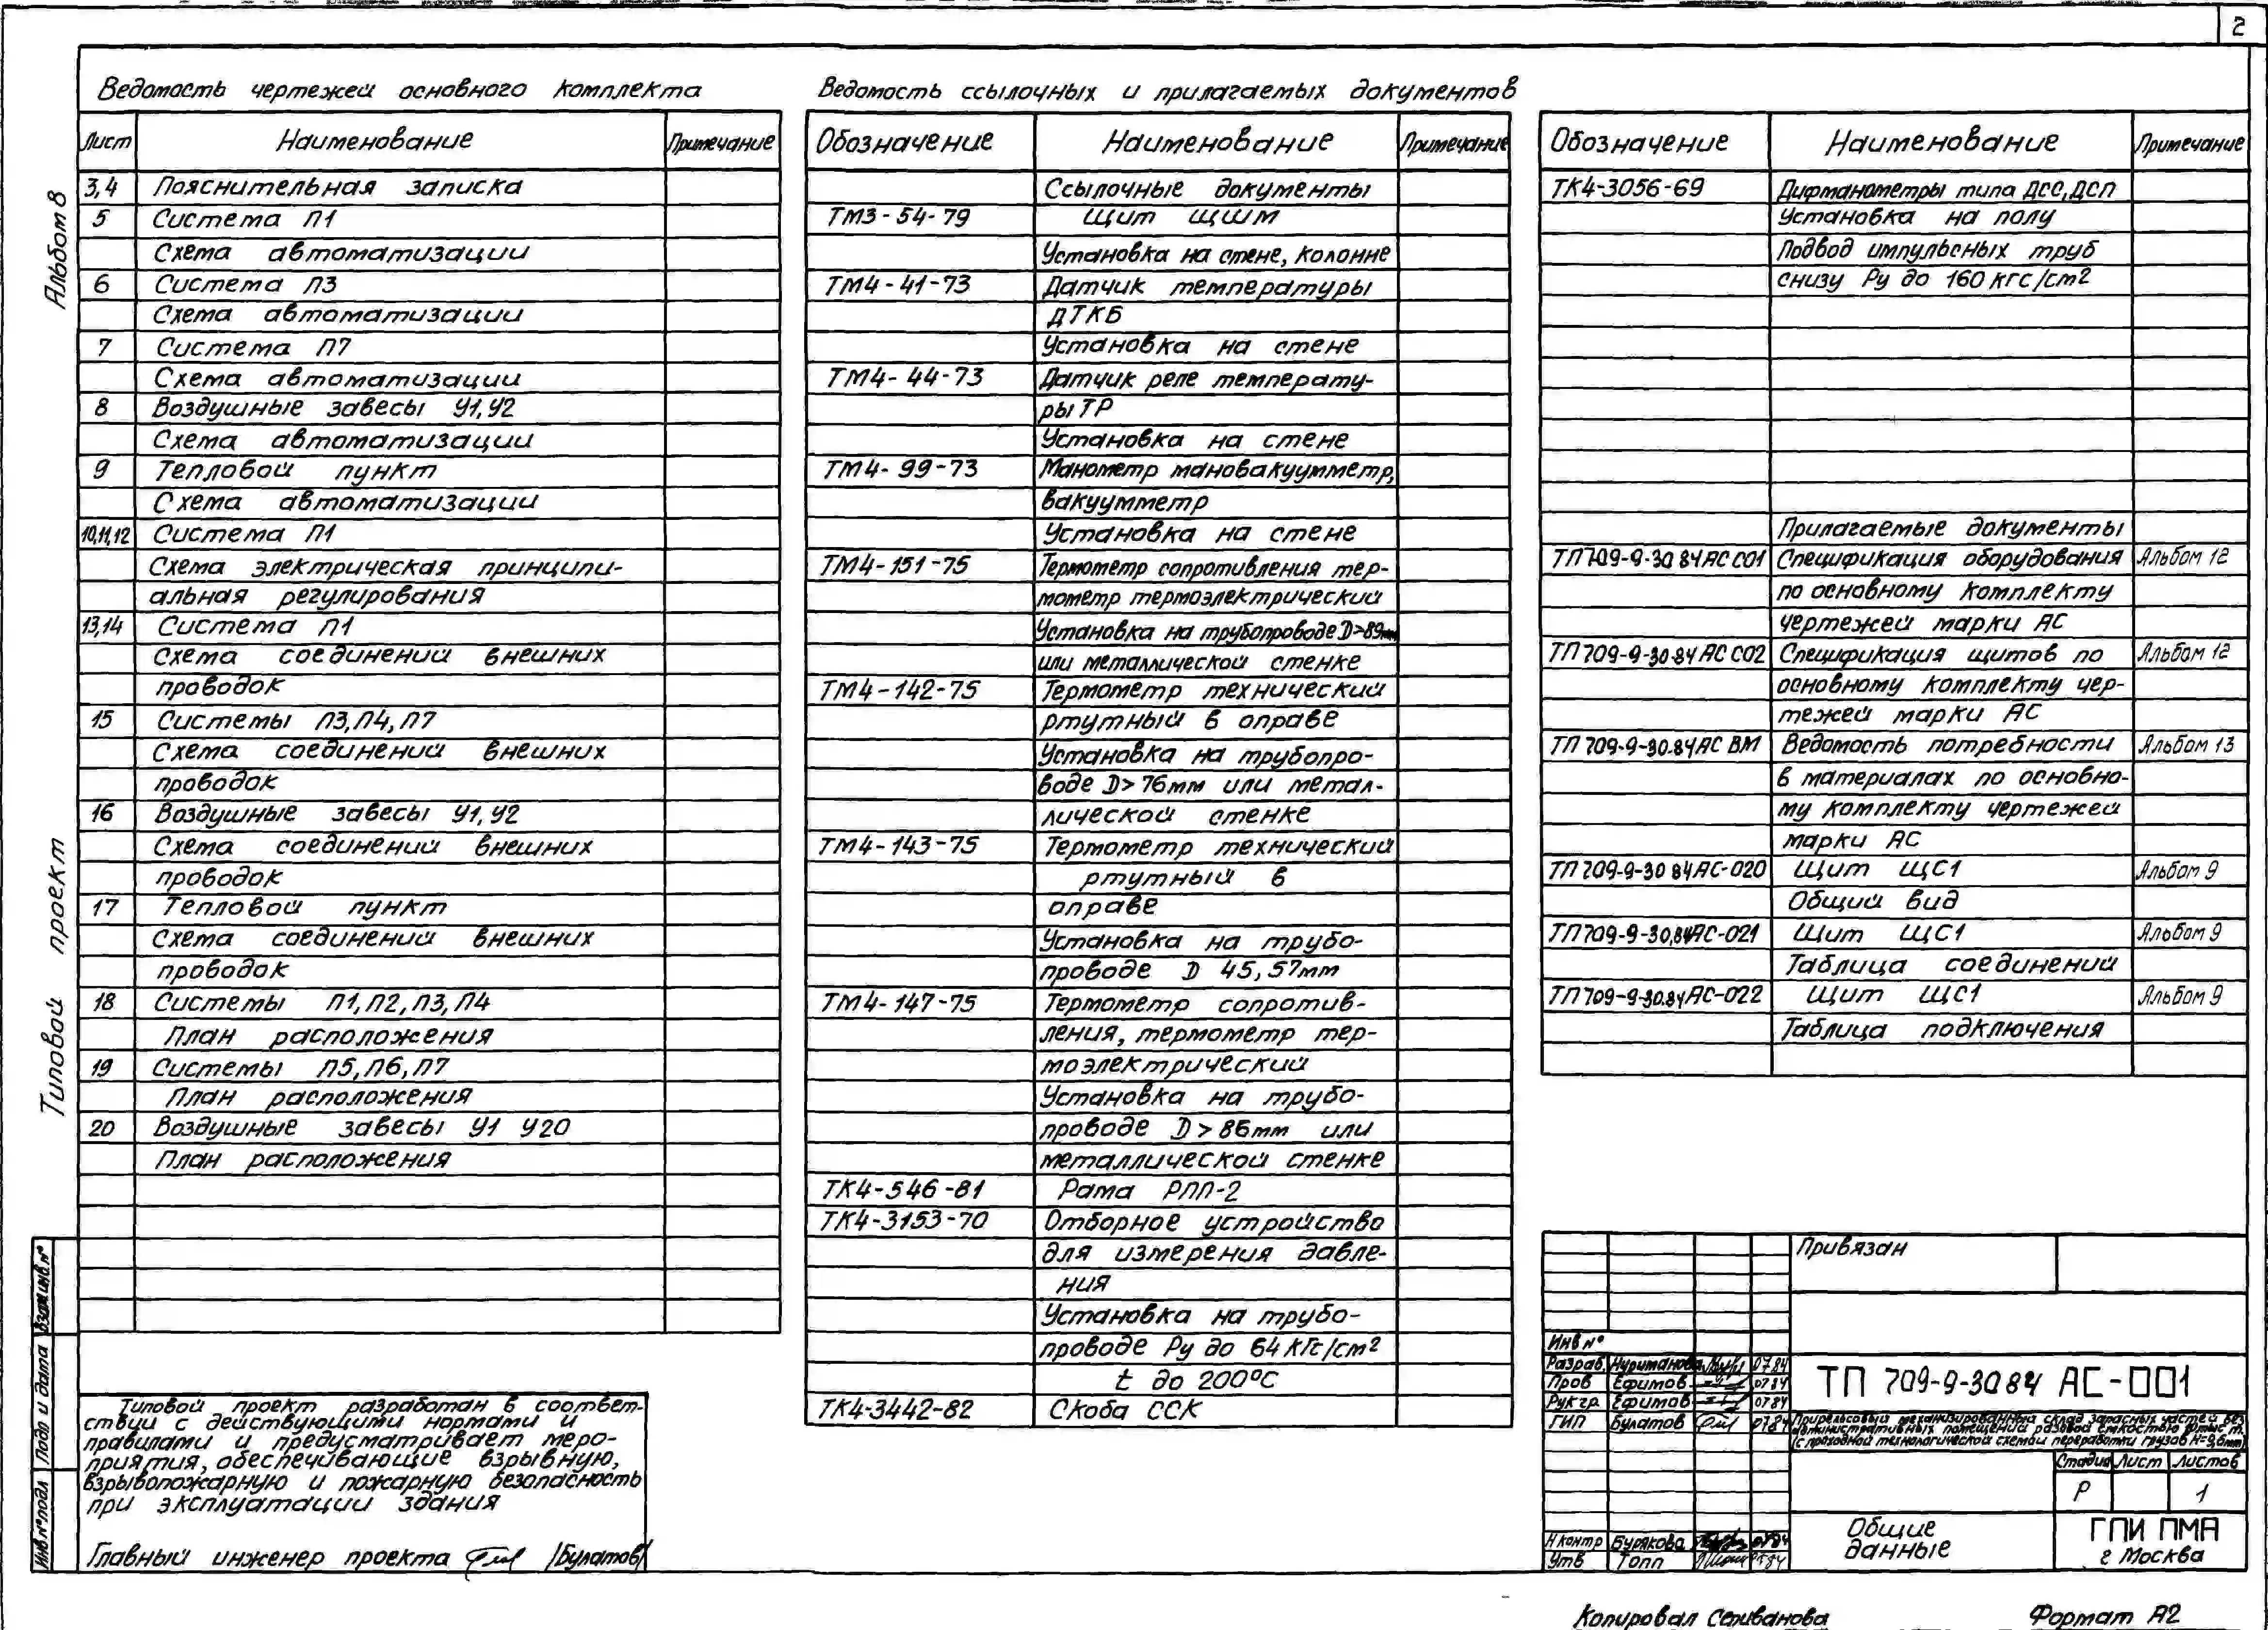 2
Альбом 8
Типовой проект
Ведомость чертежей основного комплекта
Лист Наименование Примечание
3,4 Пояснительная записка
5 Система П1
Схема автоматизации
6 Система П3
Схема автоматизации
7 Система П7
Схема автоматизации
8 Воздушные завесы У1, У2
Схема автоматизации
9 Тепловой пункт
Схема автоматизации
10,11,12 Система П1
Схема электрическая принципи-
альная регулирования
13,14 Система П1
Схема соединений внешних
проводок
15 Системы П3, П4, П7
Схема соединений внешних
проводок
16 Воздушные завесы У1, У2
Схема соединений внешних
проводок
17 Тепловой пункт
Схема соединений внешних
проводок
18 Системы П1, П2, П3, П4
План расположения
19 Системы П5, П6, П7
План расположения
20 Воздушные завесы У1 У20
План расположения
Ведомость ссылочных и прилагаемых документов
Обозначение Наименование Примечание
Ссылочные документы
ТМ3-54-79 Щит ЩШМ
Установка на стене, колонне
ТМ4-41-73 Датчик температуры
ДТКБ
Установка на стене
ТМ4-44-73 Датчик реле температу-
ры ТР
Установка на стене
ТМ4-99-73 Манометр мановакуумметр,
вакуумметр
Установка на стене
ТМ4-151-75 Термометр сопротивления тер-
мометр термоэлектрический
Установка на трубопроводе D>89мм
или металлической стенке
ТМ4-142-75 Термометр технический
ртутный в оправе
Установка на трубопро-
воде D>76мм или метал-
лической стенке
ТМ4-143-75 Термометр технический
ртутный в
оправе
Установка на трубо-
проводе D 45, 57мм
ТМ4-147-75 Термометр сопротив-
ления, термометр тер-
моэлектрический
Установка на трубо-
проводе D>86мм или
металлической стенке
ТК4-546-81 Рама РПП-2
ТК4-3153-70 Отборное устройство
для измерения давле-
ния
Установка на трубо-
проводе Ру до 64 кгс/см2
t до 200°С
ТК4-3442-82 Скоба ССК
Обозначение Наименование Примечание
ТК4-3056-69 Дифманометры типа ДСС, ДСП
Установка на полу
Подвод импульсных труб
снизу Ру до 160 кгс/см2
Прилагаемые документы
ТП 709-9-30 84 АС СО1 Спецификация оборудования Альбом 12
по основному комплекту
чертежей марки АС
ТП 709-9-30.84 АС СО2 Спецификация щитов по Альбом 12
основному комплекту чер-
тежей марки АС
ТП 709-9-30.84 АС ВМ Ведомость потребности Альбом 13
в материалах по основно-
му комплекту чертежей
марки АС
ТП 709-9-30 84 АС-020 Щит ЩС1 Альбом 9
Общий вид
ТП 709-9-30.84 АС-021 Щит ЩС1 Альбом 9
Таблица соединений
ТП 709-9-30.84 АС-022 Щит ЩС1 Альбом 9
Таблица подключения
Типовой проект разработан в соответ-
ствии с действующими нормами и
правилами и предусматривает меро-
приятия, обеспечивающие взрывную,
взрывопожарную и пожарную безопасность
при эксплуатации здания
Главный инженер проекта /Булатов/
Взам инв.№
Подп и дата
Инв № подл
Привязан
Инв №
Разраб. Нуриманова 07.84
Пров Ефимов 07 84
Рук гр. Ефимов 07 84
ГИП Булатов 07 84
Н контр Бурякова 07 84
Утв Топп 07 84
ТП 709-9-30 84 АС-001
Прирельсовый механизированный склад запасных частей без
административных помещений разовой емкостью тыс т.
(с проходной технологической схемой переработки грузов Н=9,6мм)
Стадия Лист Листов
Р 1
Общие
данные
ГПИ ПМА
г Москва
Копировал Селиванова
Формат А2